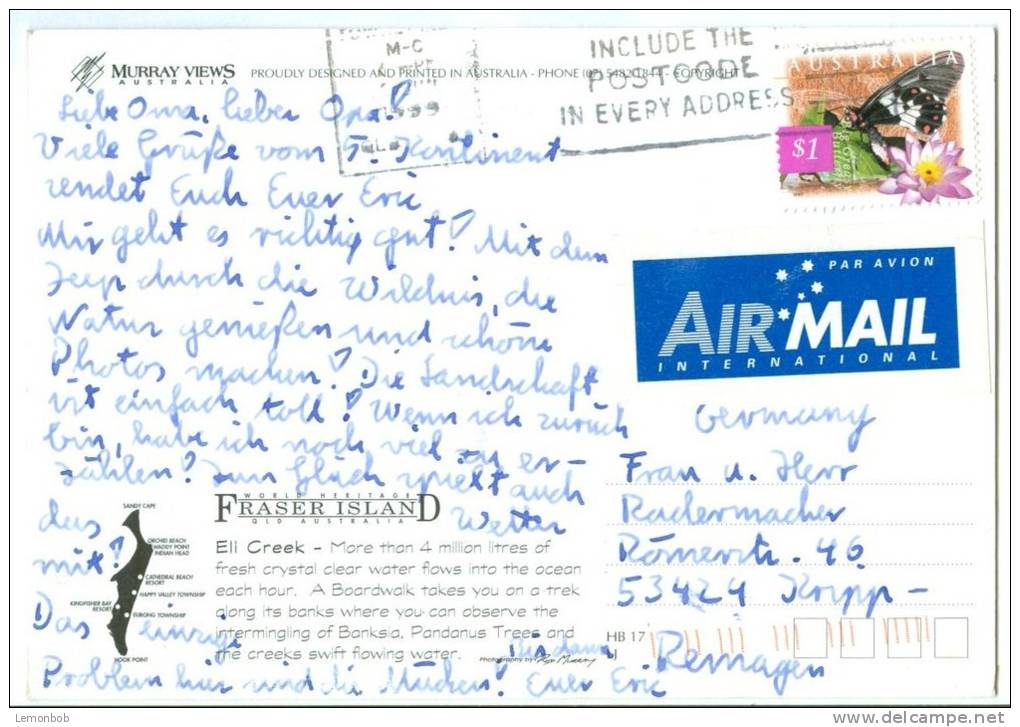 MURRAY VIEWS
AUSTRALIA
PROUDLY DESIGNED AND PRINTED IN AUSTRALIA - PHONE (07) 5482 1844 - COPYRIGHT
M-C
1999
INCLUDE THE
POSTCODE
IN EVERY ADDRESS
AUSTRALIA
$1
PAR AVION
AIR MAIL
INTERNATIONAL
Liebe Oma, lieber Opa!
Viele Grüße vom 5. Kontinent
sendet Euch Euer Eric
Mir geht es richtig gut! Mit dem
Jeep durch die Wildnis, die
Natur genießen und schöne
Photos machen! Die Landschaft
ist einfach toll! Wenn ich zurück
bin, habe ich noch viel zu er-
zählen! Zum Glück spielt auch
das Wetter
mit!
Das einzige
Problem hier sind die Mücken! Euer Eric
Germany
Frau u. Herr
Radermacher
Römerstr. 46
53424 Kripp-
Remagen
WORLD HERITAGE
FRASER ISLAND
QLD AUSTRALIA
Eli Creek - More than 4 million litres of
fresh crystal clear water flows into the ocean
each hour. A Boardwalk takes you on a trek
along its banks where you can observe the
intermingling of Banksia, Pandanus Trees and
the creeks swift flowing water.
Photography by Ron Murray
HB 17
SANDY CAPE
ORCHID BEACH
WADDY POINT
INDIAN HEAD
CATHEDRAL BEACH
RESORT
HAPPY VALLEY TOWNSHIP
KINGFISHER BAY
RESORT
EURONG TOWNSHIP
HOOK POINT
© Lemonbob
http://www.delcampe.net